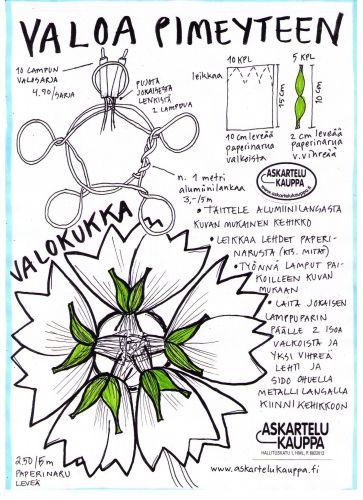 VALOA PIMEYTEEN
10 LAMPUN
VALOSARJA
4.90/SARJA
PUJOTA
JOKAISESTA
LENKISTÄ
2 LAMPPUA
n. 1 metri
alumiinilankaa
3,-/5m
10 KPL
leikkaa
15 cm
10 cm leveää
paperinarua
valkoista
5 KPL
10 cm
2 cm leveää
paperinarua
v.vihreää
ASKARTELU
KAUPPA
www.askartelukauppa.fi
VALOKUKKA
• TAITTELE ALUMIINILANGASTA
KUVAN MUKAINEN KEHIKKO
• LEIKKAA LEHDET PAPERI-
NARUSTA (KTS. MITAT)
• TYÖNNÄ LAMPUT PAI-
KOILLEEN KUVAN
MUKAAN
• LAITA JOKAISEN
LAMPPUPARIN
PÄÄLLE 2 ISOA
VALKOISTA JA
YKSI VIHREÄ
LEHTI JA
SIDO OHUELLA
METALLILANGALLA
KIINNI KEHIKKOON
2,50/5m
PAPERINARU
LEVEÄ
ASKARTELU
KAUPPA
www.askartelukauppa.fi